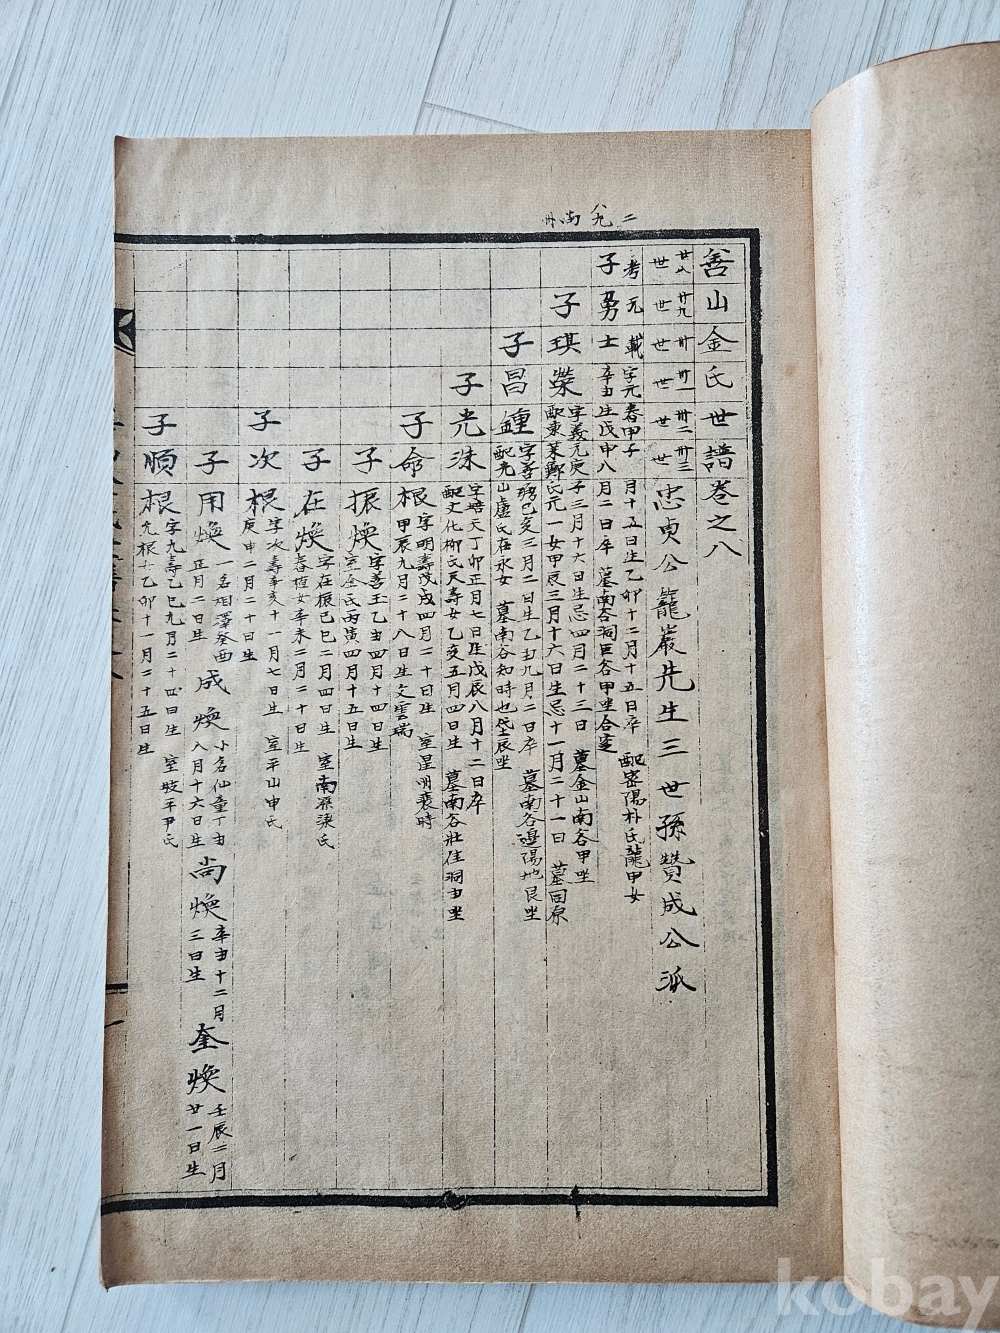 善山金氏世譜卷之八
廿八世 廿九世 卅世 卅一世 卅二世 卅三世
忠貞公籠巖先生三世孫贊成公派
考元載 字元春甲子 月十五日生乙卯十二月十五日卒 配密陽朴氏龍甲女
子勇士 辛丑生戊申八月二日卒 墓南谷洞巨谷甲坐合窆
子琪榮 字義元庚子三月十六日生忌四月二十三日 墓金山南谷甲坐
配東萊鄭氏元一女甲辰三月十六日生忌十一月二十一日 墓回原
子昌鍾 字善 己亥三月二日生乙丑九月二日卒 墓南谷邊陽地艮坐
配光山盧氏在永女 墓南谷知時也 辰坐
子光洙 字培天丁卯正月七日生戊辰八月十二日卒
配文化柳氏天壽女乙亥五月四日生 墓南谷壯佳洞丑坐
子命根 字明壽戊戌四月二十日生 室星明裵時
甲辰九月二十八日生文雲瑞
子振煥 字善玉乙丑四月十四日生
室金氏丙寅四月十五日生
子在煥 字在振己巳二月四日生 室南原梁氏
春植女辛未二月二十日生
子次根 字次壽辛亥十一月七日生 室平山申氏
庚申二月二十日生
子用煥 一名相澤癸酉正月二日生 成煥 小名仙童丁丑八月十六日生 尚煥 辛丑十二月三日生 奎煥 壬辰二月廿一日生
子順根 字九壽乙巳九月二十四日生 室坡平尹氏
允根女乙卯十一月二十五日生
kobay